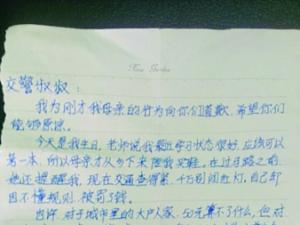 New Garden
交警叔叔：
我为刚才我母亲的行为向你们道歉，希望你们
能够原谅。
今天是我生日，老师说我最近学习状态很好，应该可以
第一本，所以母亲才从乡下陪我买鞋。在过马路之前
她还提醒我，现在交通查得紧，千万别闯红灯，自己却
因不懂规则，被罚钱。
也许，对于城市里的大户人家，50元算不了什么，但对